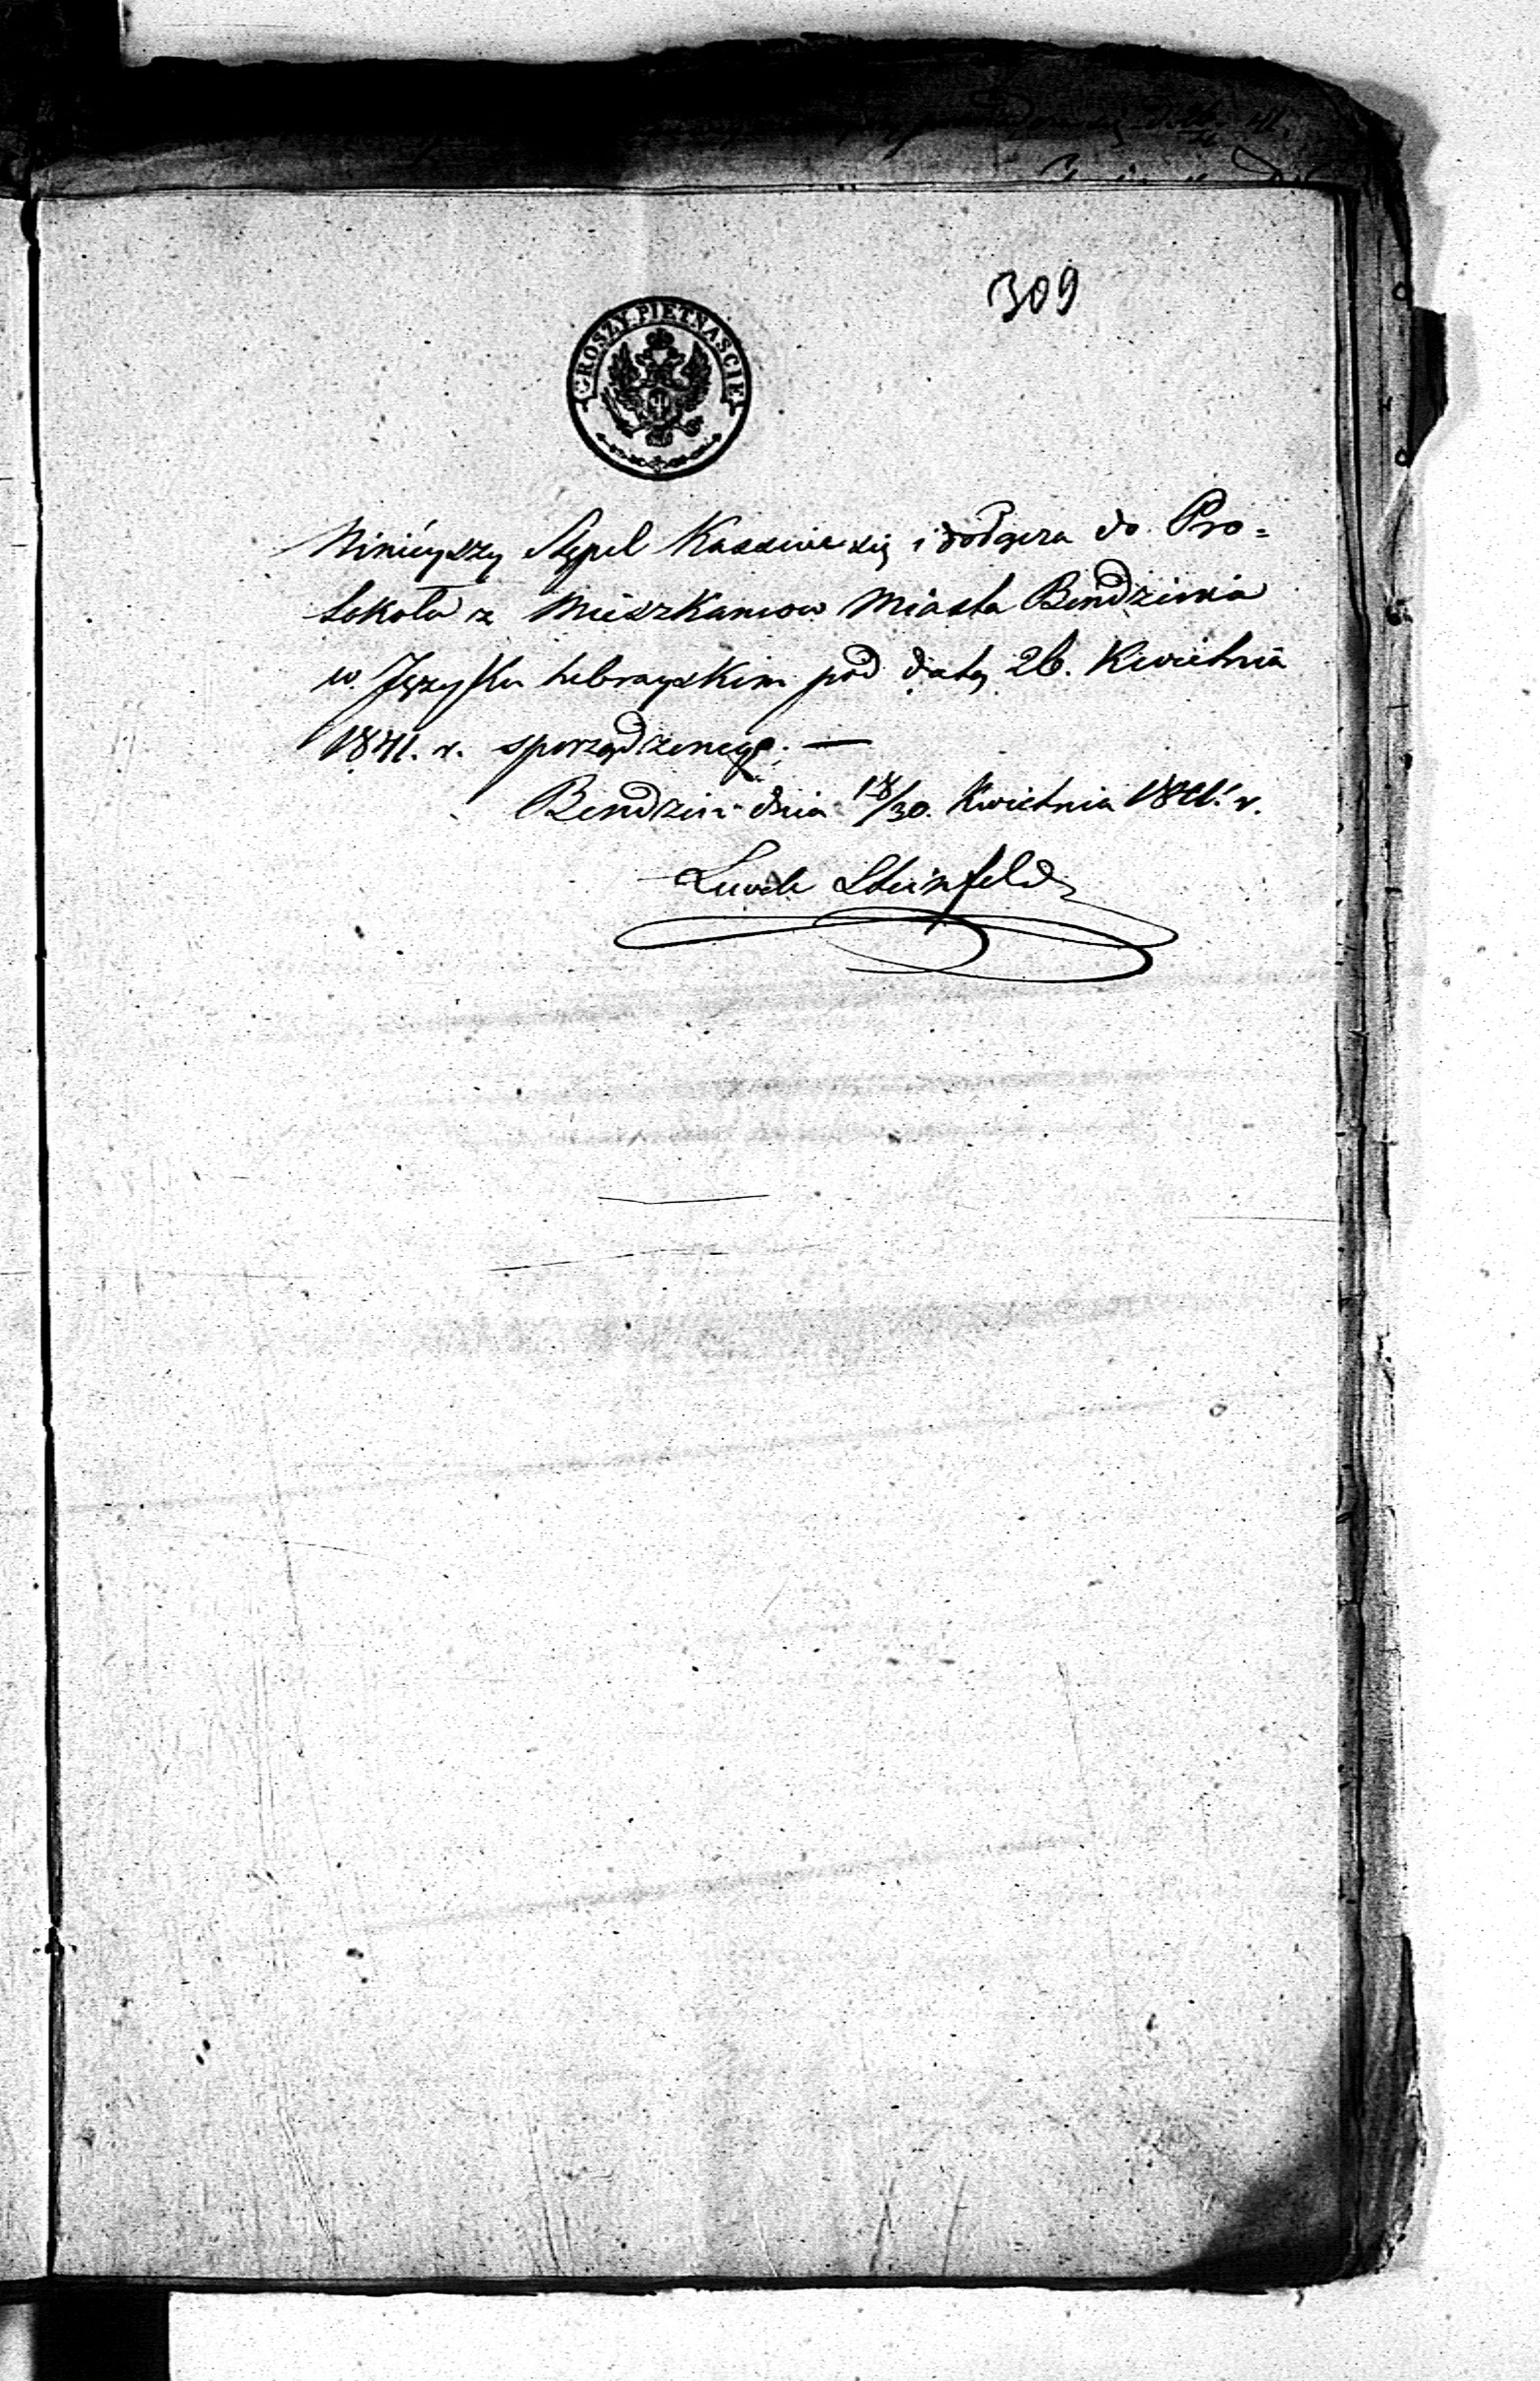 309
GROSZY PIETNAŚCIE
Ninieyszy Stępel Kassuie się i dołącza do Pro=
tokołu z Mieszkancow Miasta Bendzinia
w Języku hebrayskim pod datą 26. Kwietnia
1841. r. sporządzonego. —
Bendzin dnia 18/30. Kwietnia 1841. r.
Steinfeld